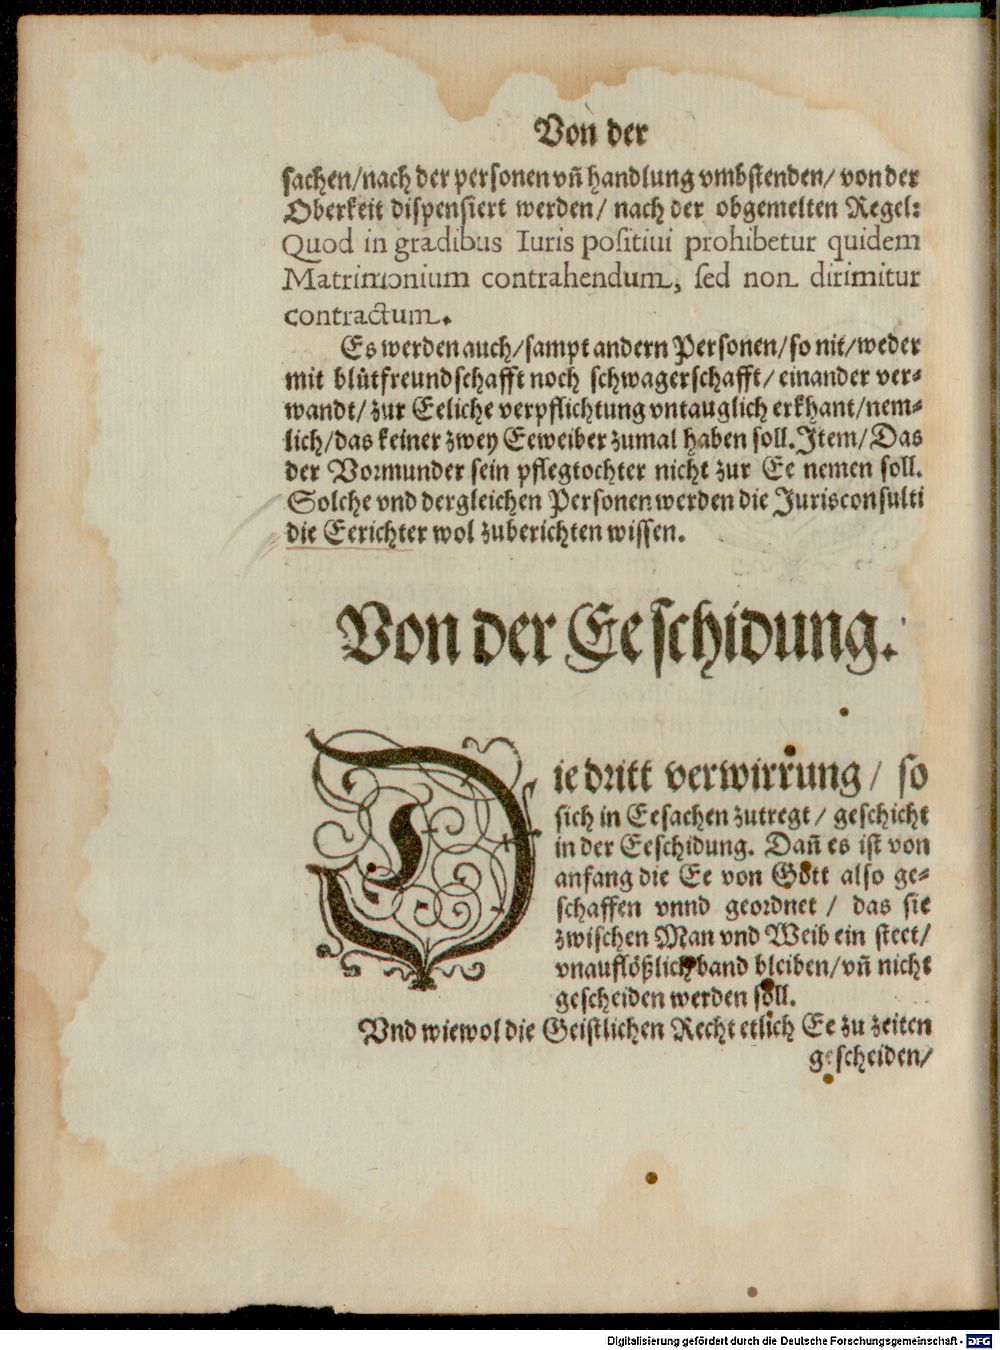 Von der
sachen/nach der personen vn̄ handlung vmbstenden/ von der
Oberkeit dispensiert werden/ nach der obgemelten Regel:
Quod in gradibus Iuris positiui prohibetur quidem
Matrimonium contrahendum, sed non dirimitur
contractum.
Es werden auch/sampt andern Personen/so nit/weder
mit blůtfreundschafft noch schwagerschafft/ einander ver-
wandt/ zur Eeliche verpflichtung vntauglich erkhant/nem-
lich/das keiner zwey Eeweiber zumal haben soll. Item/Das
der Vormunder sein pflegtochter nicht zur Ee nemen soll.
Solche vnd dergleichen Personen werden die Jurisconsulti
die Eerichter wol zuberichten wissen.
Von der Eeschidung.
Die dritt verwirrung/ so
sich in Eesachen zutregt/ geschicht
in der Eeschidung. Dan̄ es ist von
anfang die Ee von Gott also ge-
schaffen vnnd geordnet/ das sie
zwischen Man vnd Weib ein steet/
vnauflößlich band bleiben/vn̄ nicht
gescheiden werden soll.
Vnd wiewol die Geistlichen Recht etlich Ee zu zeiten
gescheiden/
Digitalisierung gefördert durch die Deutsche Forschungsgemeinschaft - DFG